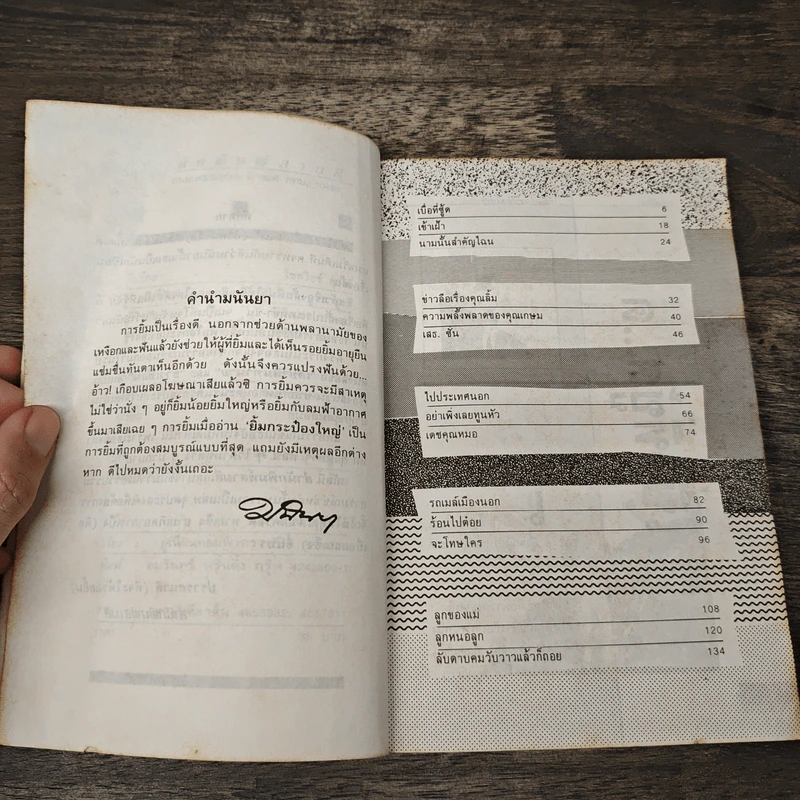 คำนำมนันยา
การยิ้มเป็นเรื่องดี นอกจากช่วยด้านพลานามัยของ
เหงือกและฟันแล้วยังช่วยให้ผู้ที่ยิ้มและได้เห็นรอยยิ้มอายุยืน
แช่มชื่นทันตาเห็นอีกด้วย ดังนั้นจึงควรแปรงฟันด้วย...
อ้าว! เกือบเผลอโฆษณาเสียแล้วซิ การยิ้มควรจะมีสาเหตุ
ไม่ใช่ว่านั่ง ๆ อยู่ก็ยิ้มน้อยยิ้มใหญ่หรือยิ้มกับลมฟ้าอากาศ
ขึ้นมาเสียเฉย ๆ การยิ้มเมื่ออ่าน 'ยิ้มกระป๋องใหญ่' เป็น
การยิ้มที่ถูกต้องสมบูรณ์แบบที่สุด แถมยังมีเหตุผลอีกต่าง
หาก ดีไปหมดว่ายังงั้นเถอะ
เบื่อที่ซู้ด 6
เข้าเฝ้า 18
นามนั้นสำคัญไฉน 24
ข่าวลือเรื่องคุณลิ้ม 32
ความพลั้งพลาดของคุณเกษม 40
เสธ. ชัน 46
ไปประเทศนอก 54
อย่าเพิ่งเลยทูนหัว 66
เดชคุณหมอ 74
รถเมล์เมืองนอก 82
ร้อนไปต๋อย 90
จะโทษใคร 96
ลูกของแม่ 108
ลูกหนอลูก 120
ลับดาบคมวับวาวแล้วก็ถอย 134